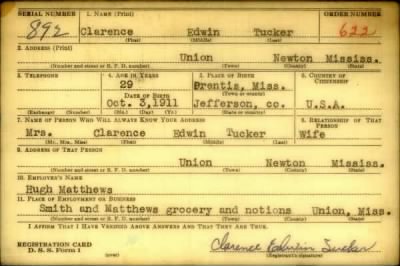 SERIAL NUMBER 1. NAME (Print) ORDER NUMBER
892 Clarence Edwin Tucker 622
(First) (Middle) (Last)
2. ADDRESS (Print)
Union Newton Mississ.
(Number and street or R. F. D. number) (Town) (County) (State)
3. TELEPHONE 4. AGE IN YEARS 5. PLACE OF BIRTH 6. COUNTRY OF CITIZENSHIP
29 Prentis, Miss.
DATE OF BIRTH (Town or county)
Oct. 3,1911 Jefferson, co. U.S.A.
(Exchange) (Number) (Mo.) (Day) (Yr.) (State or country)
7. NAME OF PERSON WHO WILL ALWAYS KNOW YOUR ADDRESS 8. RELATIONSHIP OF THAT PERSON
Mrs. Clarence Edwin Tucker Wife
(Mr., Mrs., Miss) (First) (Middle) (Last)
9. ADDRESS OF THAT PERSON
Union Newton Mississ.
(Number and street or R. F. D. number) (Town) (County) (State)
10. EMPLOYER'S NAME
Hugh Matthews
11. PLACE OF EMPLOYMENT OR BUSINESS
Smith and Matthews grocery and notions Union, Miss.
(Number and street or R. F. D. number) (Town) (County) (State)
I AFFIRM THAT I HAVE VERIFIED ABOVE ANSWERS AND THAT THEY ARE TRUE.
REGISTRATION CARD
D. S. S. Form 1 (over) Clarence Edwin Tucker
(Registrant's signature)